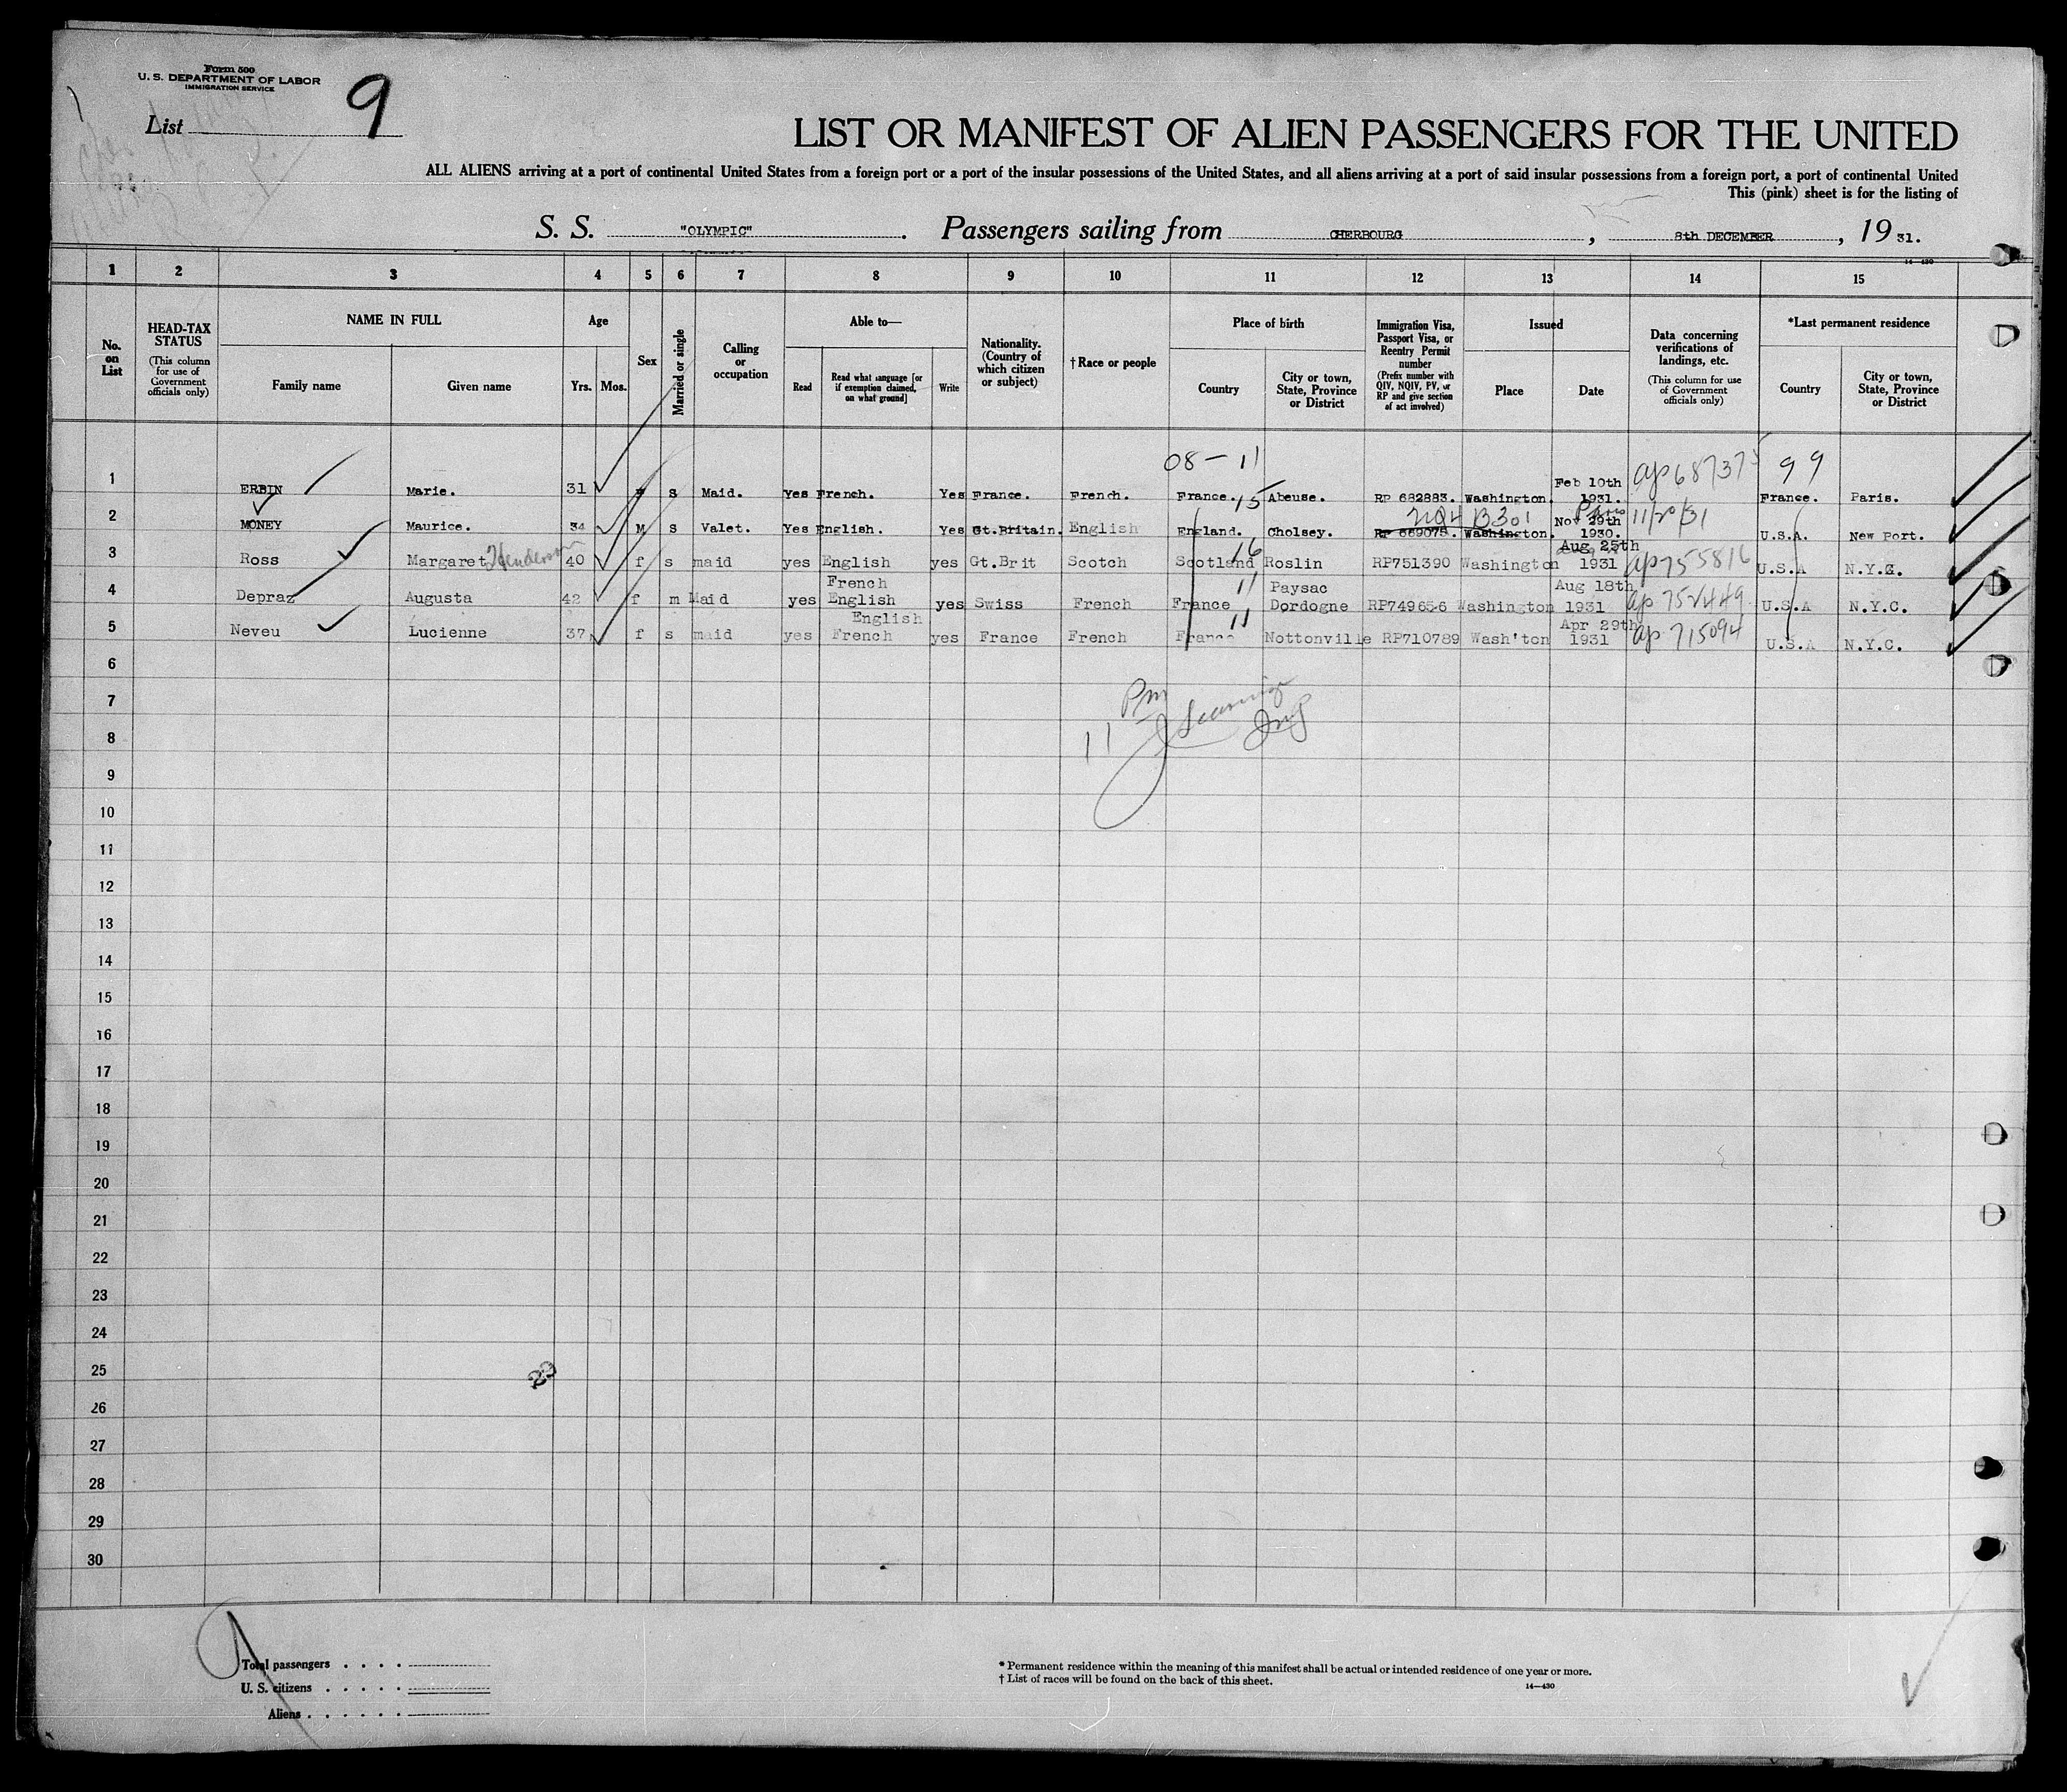 Form 500
U. S. DEPARTMENT OF LABOR
IMMIGRATION SERVICE
List 9
LIST OR MANIFEST OF ALIEN PASSENGERS FOR THE UNITED
ALL ALIENS arriving at a port of continental United States from a foreign port or a port of the insular possessions of the United States, and all aliens arriving at a port of said insular possessions from a foreign port, a port of continental United
This (pink) sheet is for the listing of
S. S. "OLYMPIC". Passengers sailing from CHERBOURG, 8th DECEMBER, 1931.
14-430
1 2 3 4 5 6 7 8 9 10 11 12 13 14 15
No. on List
HEAD-TAX STATUS
(This column for use of Government officials only)
NAME IN FULL
Family name
Given name
Age
Yrs. Mos.
Sex
Married or single
Calling or occupation
Able to—
Read
Read what language [or if exemption claimed, on what ground]
Write
Nationality. (Country of which citizen or subject)
† Race or people
Place of birth
Country
City or town, State, Province or District
Immigration Visa, Passport Visa, or Reentry Permit number
(Prefix number with QIV, NQIV, PV, or RP and give section of act involved)
Issued
Place
Date
Data concerning verifications of landings, etc.
(This column for use of Government officials only)
*Last permanent residence
Country
City or town, State, Province or District
08-11
1 ERBIN Marie. 31 S Maid. Yes French. Yes France. French. France. Abeuse. RP 682883. Washington. Feb 10th 1931. ap 687375 99 France. Paris.
2 MONEY Maurice. 34 M S Valet. Yes English. Yes Gt.Britain. English England. 15 Cholsey. RP 669075. Washington. Nov 29th 1930. B301 11/20/31 U.S.A. New Port.
3 Ross Margaret Henderson 40 f s maid yes English yes Gt.Brit Scotch Scotland 16 Roslin RP751390 Washington Aug 25th 1931 ap 755816 U.S.A N.Y.C.
4 Depraz Augusta 42 f m Maid yes French English yes Swiss French France 11 Paysac Dordogne RP749656 Washington Aug 18th 1931 ap 752449 U.S.A N.Y.C.
5 Neveu Lucienne 37 f s maid yes English French yes France French France 11 Nottonville RP710789 Wash'ton Apr 29th 1931 ap 715094 U.S.A N.Y.C.
6
7
Pm
8
11
Ing
9
10
11
12
13
14
15
16
17
18
19
20
21
22
23
24
25
23
26
27
28
29
30
Total passengers . . . .
U. S. citizens . . . . .
Aliens . . . . . .
* Permanent residence within the meaning of this manifest shall be actual or intended residence of one year or more.
† List of races will be found on the back of this sheet.
14—430